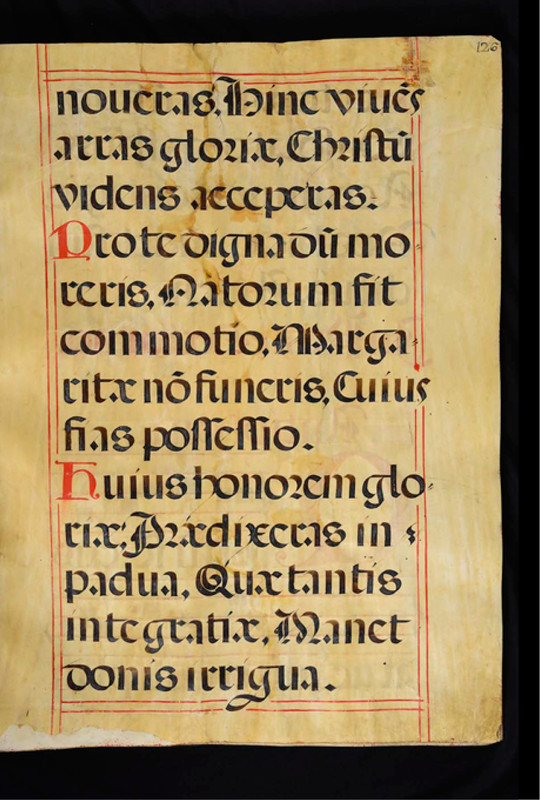 126
noueras, Hinc viuēs
arras gloriæ, Chriſtū
videns acceperas.
Pro te dignadū mo-
reris, Natorum fit
commotio, Marga-
ritæ nō funeris, Cuius
fias poſſeſſio.
Huius honorem glo-
riæ, Prædixeras in
padua, Quæ tantis
inte gratiæ, Manet
donis irrigua.